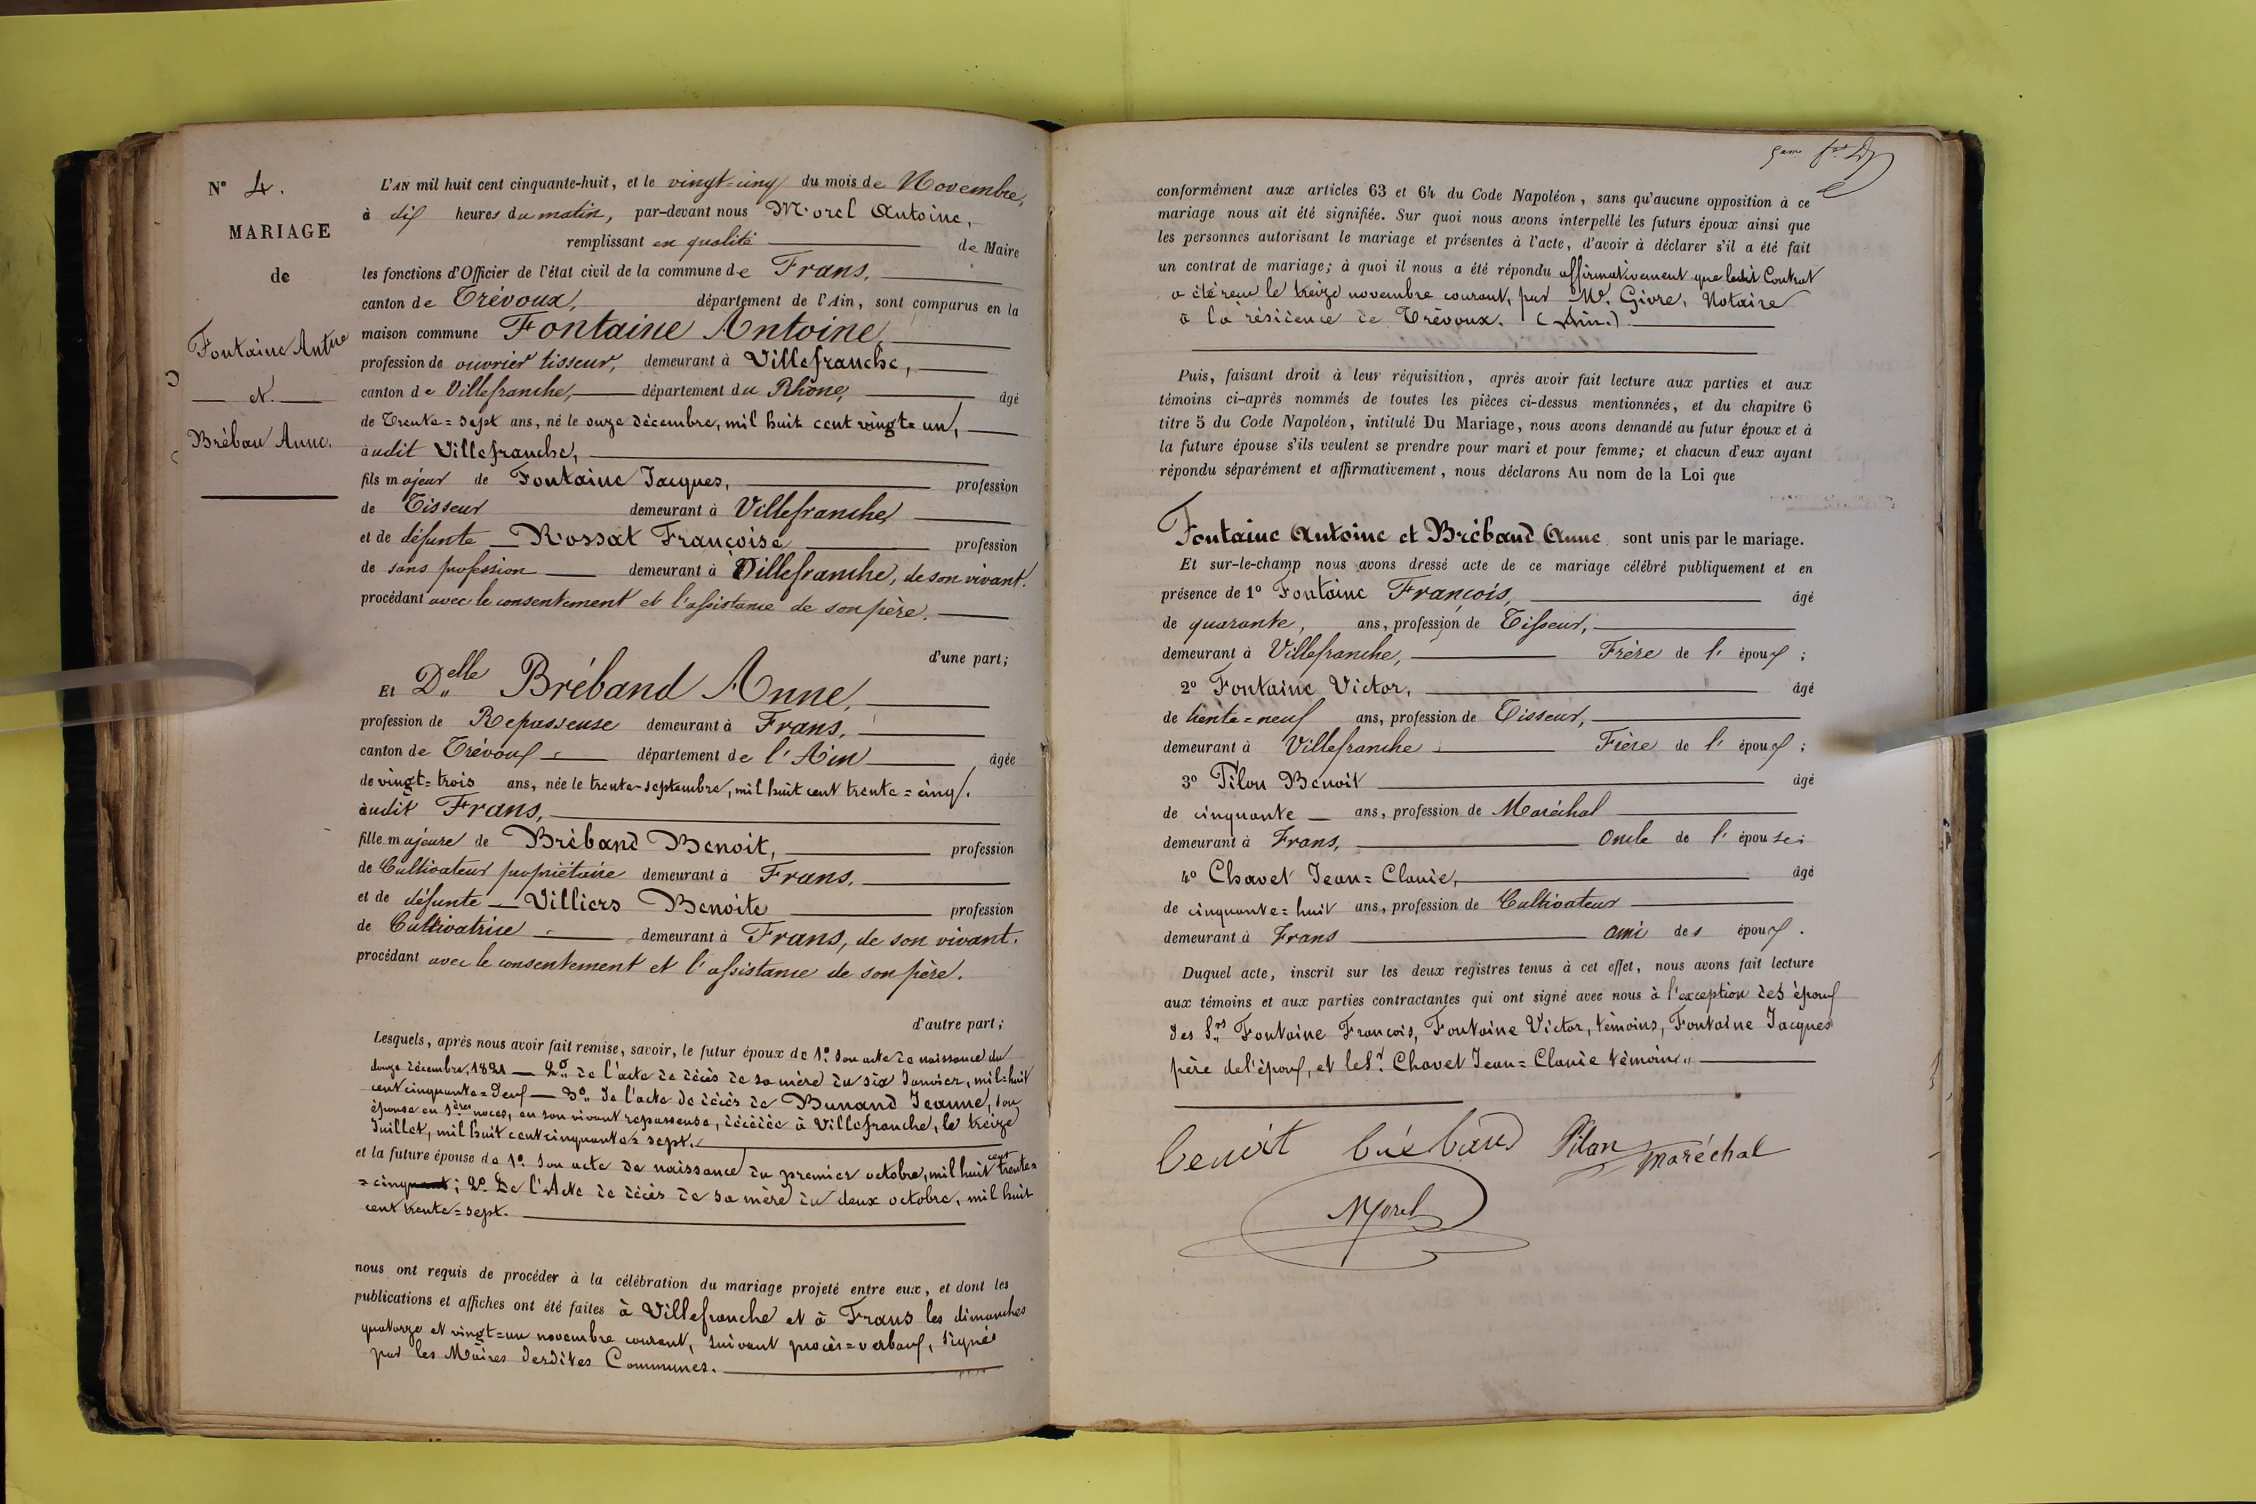 N° 4.
MARIAGE
de
Fontaine Antne
et
Bréban Anne.
L'AN mil huit cent cinquante-huit, et le vingt-cinq du mois de Novembre,
à dix heures du matin, par-devant nous Morel Antoine,
remplissant en qualité de Maire
les fonctions d'Officier de l'état civil de la commune de Frans,
canton de Trévoux, département de l'Ain, sont comparus en la
maison commune Fontaine Antoine,
profession de ouvrier tisseur, demeurant à Villefranche,
canton de Villefranche, département du Rhône, âgé
de Trente=sept ans, né le onze décembre, mil huit cent vingt=un,
audit Villefranche,
fils majeur de Fontaine Jacques, profession
de Tisseur demeurant à Villefranche
et de défunte Rossat Françoise profession
de sans profession demeurant à Villefranche, de son vivant.
procédant avec le consentement et l'assistance de son père.
d'une part;
Et Delle Bréband Anne,
profession de Repasseuse demeurant à Frans,
canton de Trévoux département de l'Ain âgée
de vingt=trois ans, née le trente-septembre, mil huit cent trente=cinq.
audit Frans,
fille majeure de Bréband Benoit, profession
de Cultivateur propriétaire demeurant à Frans,
et de défunte Villiers Benoite profession
de Cultivatrice demeurant à Frans, de son vivant.
procédant avec le consentement et l'assistance de son père.
d'autre part;
Lesquels, après nous avoir fait remise, savoir, le futur époux de 1° son acte de naissance du
douze décembre, 1821 — 2° de l'acte de décès de sa mère du six Janvier, mil=huit
cent cinquante=deux — 3° de l'acte de décès de Bunand Jeanne, son
épouse en 1ères noces, en son vivant repasseuse, décédée à Villefranche, le treize
Juillet, mil huit cent cinquante=sept.
et la future épouse de 1° son acte de naissance du premier octobre, mil huit cent trente=
=cinq; 2° De l'Acte de décès de sa mère du deux octobre, mil huit
cent trente=sept.
nous ont requis de procéder à la célébration du mariage projeté entre eux, et dont les
publications et affiches ont été faites à Villefranche et à Frans les dimanches
quatorze et vingt=un novembre courant, suivant procès=verbaux, signés
par les Maires desdites Communes.
conformément aux articles 63 et 64 du Code Napoléon, sans qu'aucune opposition à ce
mariage nous ait été signifiée. Sur quoi nous avons interpellé les futurs époux ainsi que
les personnes autorisant le mariage et présentes à l'acte, d'avoir à déclarer s'il a été fait
un contrat de mariage; à quoi il nous a été répondu affirmativement que ledit Contrat
a été reçu le treize novembre courant, par Me. Givre, Notaire
à la résidence de Trévoux. (Ain.)
Puis, faisant droit à leur réquisition, après avoir fait lecture aux parties et aux
témoins ci-après nommés de toutes les pièces ci-dessus mentionnées, et du chapitre 6
titre 5 du Code Napoléon, intitulé Du Mariage, nous avons demandé au futur époux et à
la future épouse s'ils veulent se prendre pour mari et pour femme; et chacun d'eux ayant
répondu séparément et affirmativement, nous déclarons Au nom de la Loi que
Fontaine Antoine et Bréband Anne sont unis par le mariage.
Et sur-le-champ nous avons dressé acte de ce mariage célébré publiquement et en
présence de 1° Fontaine François, âgé
de quarante, ans, profession de Tisseur,
demeurant à Villefranche, Frère de l'époux;
2° Fontaine Victor, âgé
de trente=neuf ans, profession de Tisseur,
demeurant à Villefranche Frère de l'époux;
3° Pilon Benoit âgé
de cinquante ans, profession de Maréchal
demeurant à Frans, Oncle de l'épouse;
4° Chavet Jean=Claude, âgé
de cinquante=huit ans, profession de Cultivateur
demeurant à Frans ami des époux.
Duquel acte, inscrit sur les deux registres tenus à cet effet, nous avons fait lecture
aux témoins et aux parties contractantes qui ont signé avec nous à l'exception des époux
des Srs Fontaine François, Fontaine Victor, témoins, Fontaine Jacques
père de l'époux, et le Sr. Chavet Jean=Claude témoin.
benoit bréband Pilon maréchal
Morel